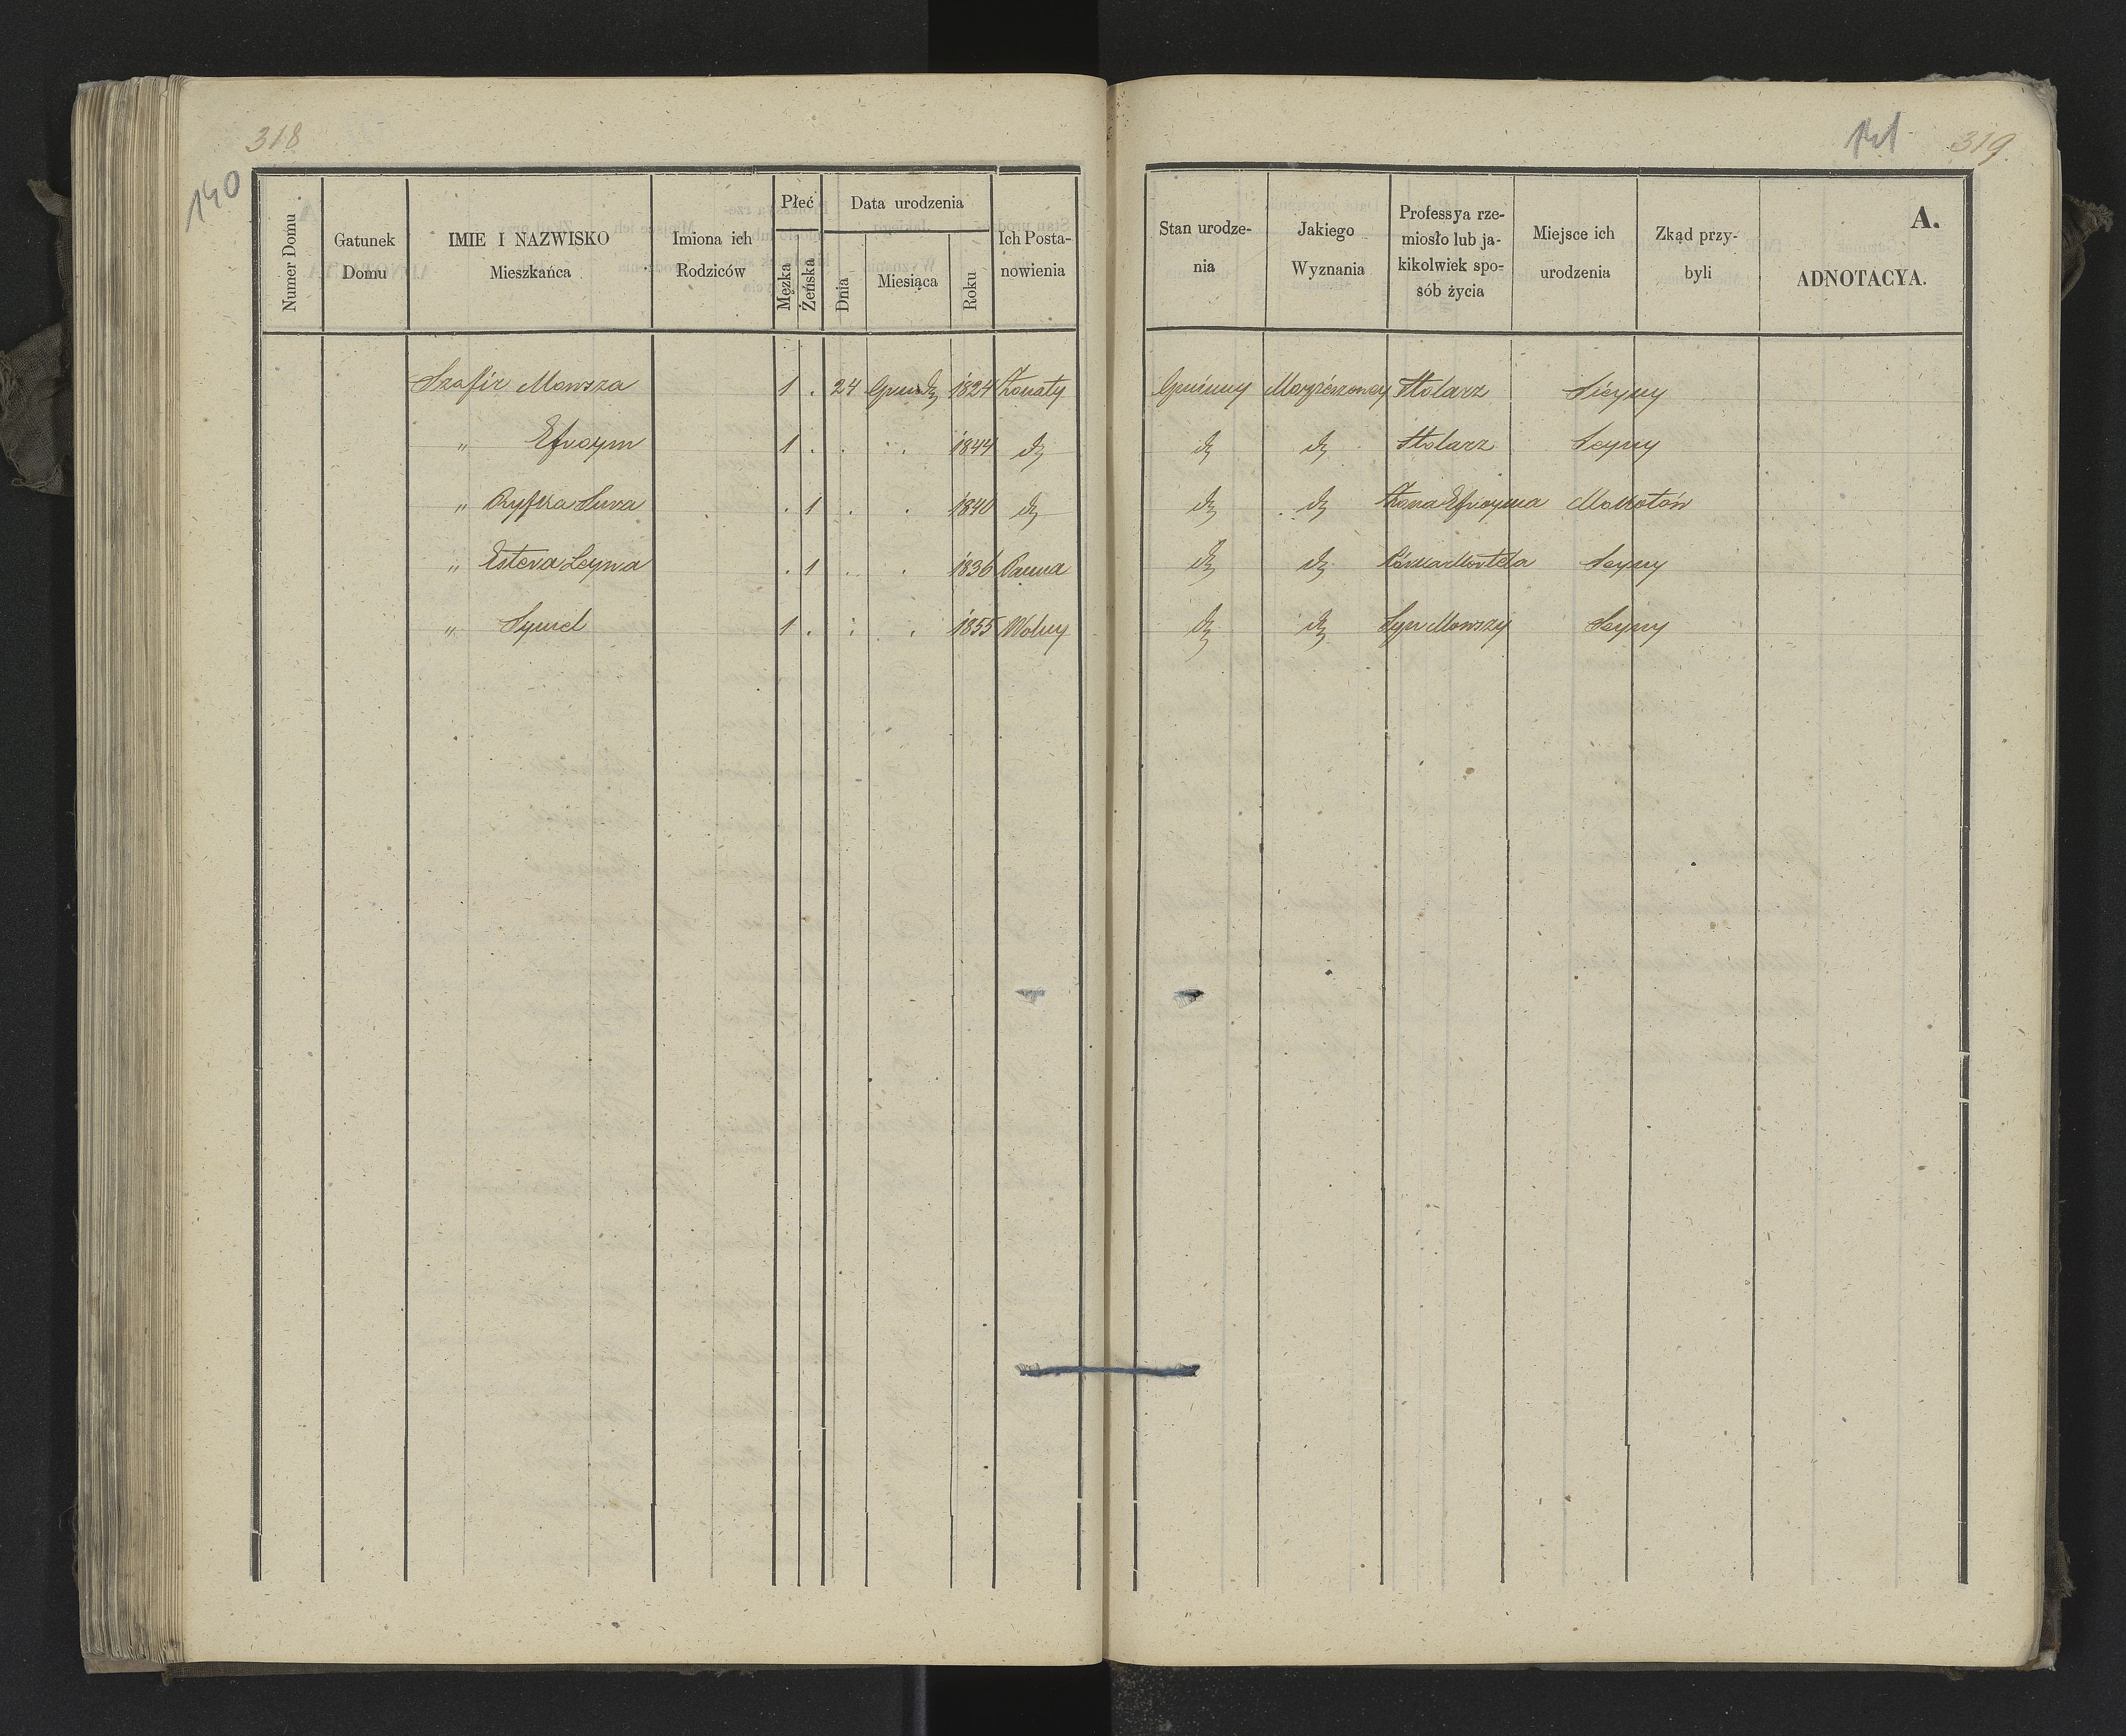 318
140
Numer Domu
Gatunek Domu
IMIE I NAZWISKO Mieszkańca
Imiona ich Rodziców
Płeć
Męzka
Żeńska
Data urodzenia
Dnia
Miesiąca
Roku
Ich Postanowienia
Szafir Mowsza 1 . 24 Grudz 1824 Żonaty
" Efroym 1 . . . 1844 dt
" Ryfka Sura . 1 . . 1840 dt
" Estera Leywa . 1 . . 1836 Panna
" Symel 1 . . . 1855 Wolny
141
319
A.
Stan urodze-
nia
Jakiego
Wyznania
Professya rze-
miosło lub ja-
kikolwiek spo-
sób życia
Miejsce ich
urodzenia
Zkąd przy-
byli
ADNOTACYA.
Gminny Stolarz Sejny
dt dt Stolarz Sejny
dt dt Żona Efroyma
dt dt Sejny
dt dt Syn Mowszy Sejny